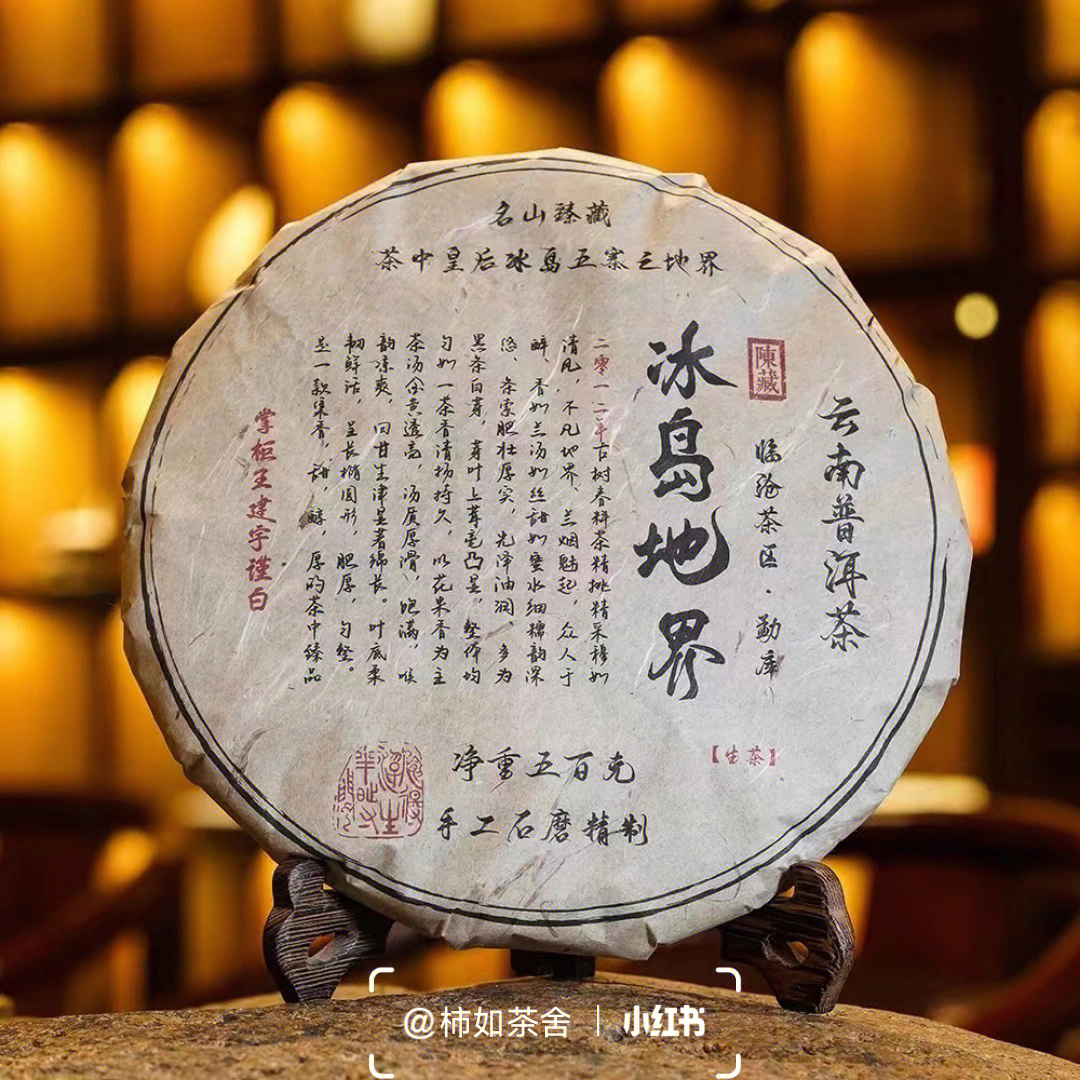 名山臻藏
茶中皇后冰岛五寨之地界
云南普洱茶
陳藏
临沧茶区·勐库
冰岛地界
【生茶】
二零一二年古树春料茶精挑精采穆如
清风,不凡地界、兰烟魅起,众人于
醉,香如兰汤如丝甜如蜜水细糯韵深
悠、条索肥壮厚实,光泽油润、多为
黑条白芽,芽叶上茸毫凸显,整体均
匀如一茶香清扬持久,以花果香为主
茶汤金黄透亮,汤质厚滑,饱满,喉
韵凉爽,回甘生津显著绵长。叶底柔
韧鲜活,呈长椭圆形,肥厚,匀整。
是一款集香,甜,醇,厚的茶中臻品
掌柜王建宇谨白
净重五百克
手工石磨精制
@柿如茶舍 | 小红书